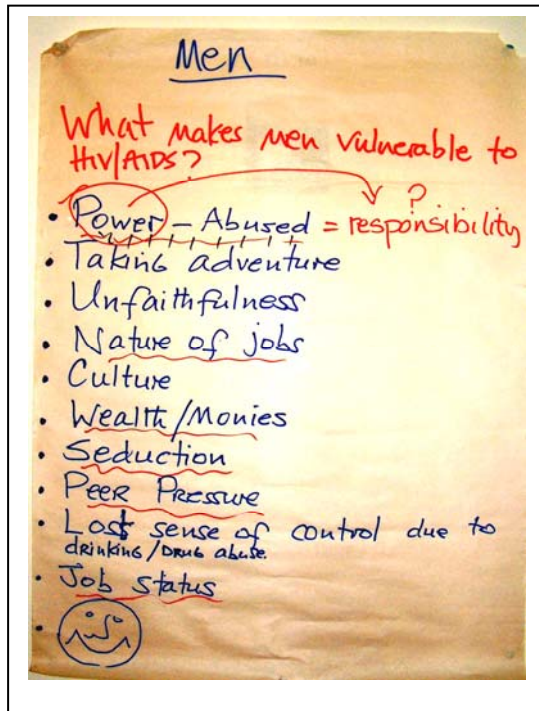 Men
What makes men vulnerable to
HIV/AIDS?
?
• Power – Abused = responsibility
• Taking adventure
• Unfaithfulness
• Nature of jobs
• Culture
• Wealth/Monies
• Seduction
• Peer Pressure
• Lost sense of control due to
drinking/Drug abuse.
• Job status
•